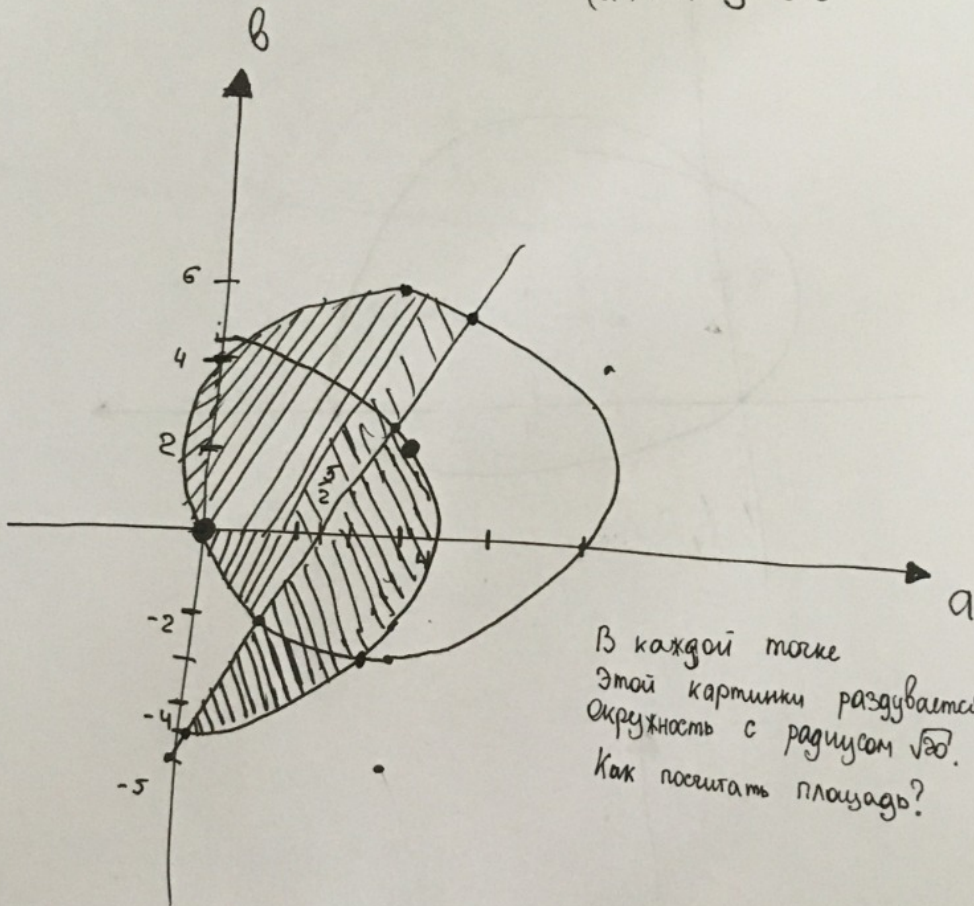 в
6
4
2
5
2
4
-2
-4
-5
a
В каждой точке
Этой картинки раздувается
Окружность с радиусом √20.
Как посчитать площадь?